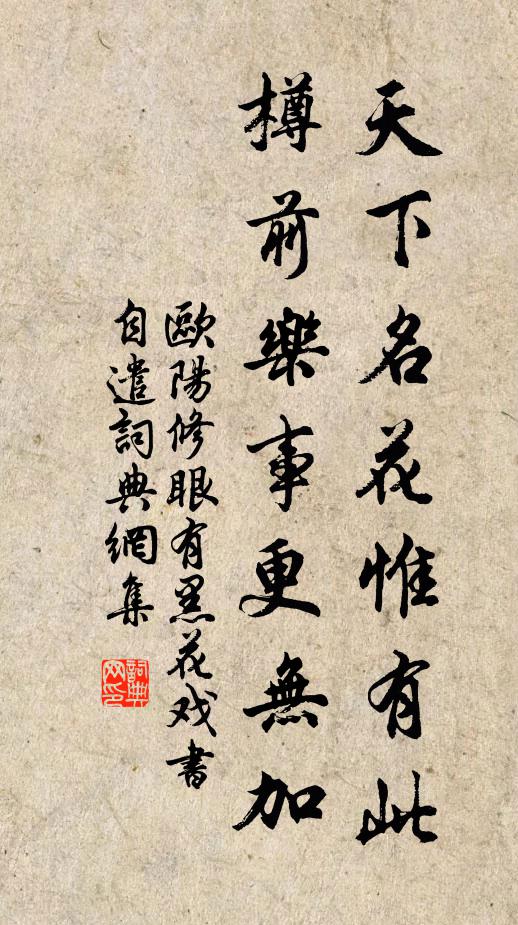 天下名花惟有此
樽前樂事更無加
歐陽修眼有黑花戏書
自遣詞典網集
詞典
网印